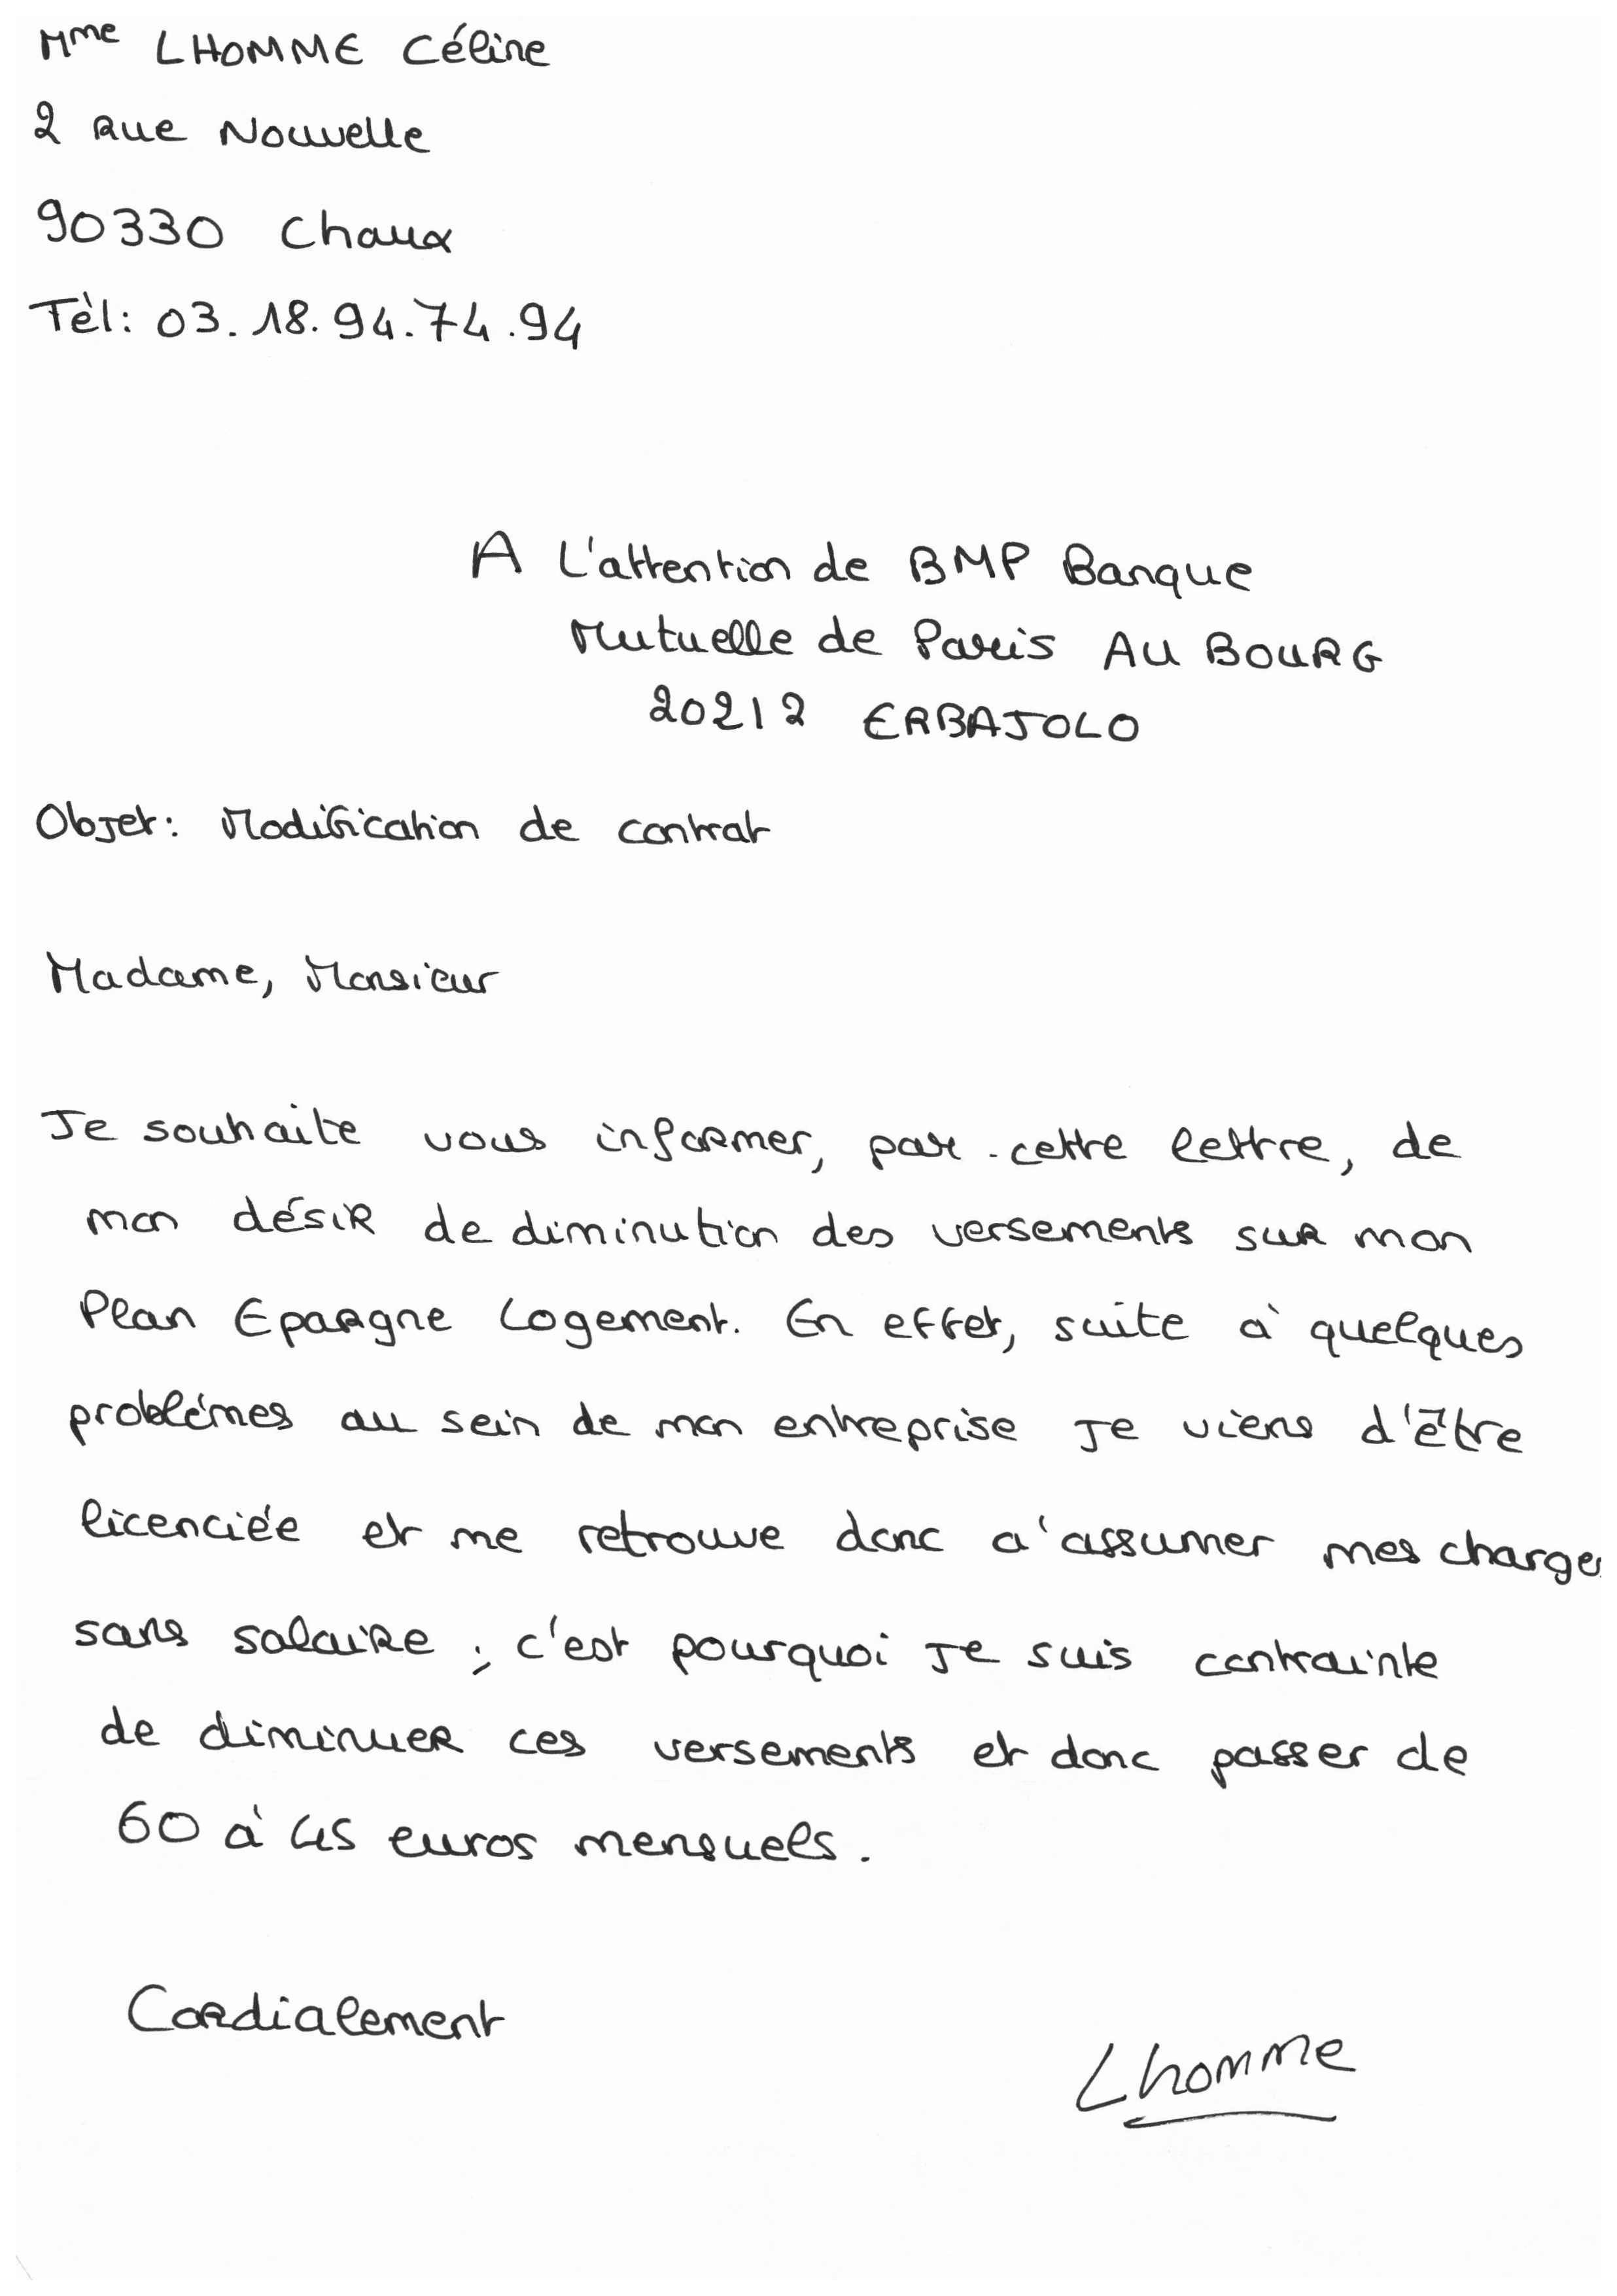 Mme LHOMME Céline
2 Rue Nouvelle
90330 Chaux
Tèl: 03.18.94.74.94
A L'attention de BMP Banque
Mutuelle de Paris AU BOURG
20212 ERBAJOLO
Objet: Modification de contrat
Madame, Monsieur
Je souhaite vous informer, par cette lettre, de
mon désir de diminution des versements sur mon
Plan Epargne Logement. En effet, suite à quelques
problémes au sein de mon entreprise je viens d'être
licenciée et me retrouve donc a' assumer mes charges
sans salaire ; c'est pourquoi je suis contrainte
de diminuer ces versements et donc passer de
60 à 45 euros mensuels.
Cordialement
Lhomme